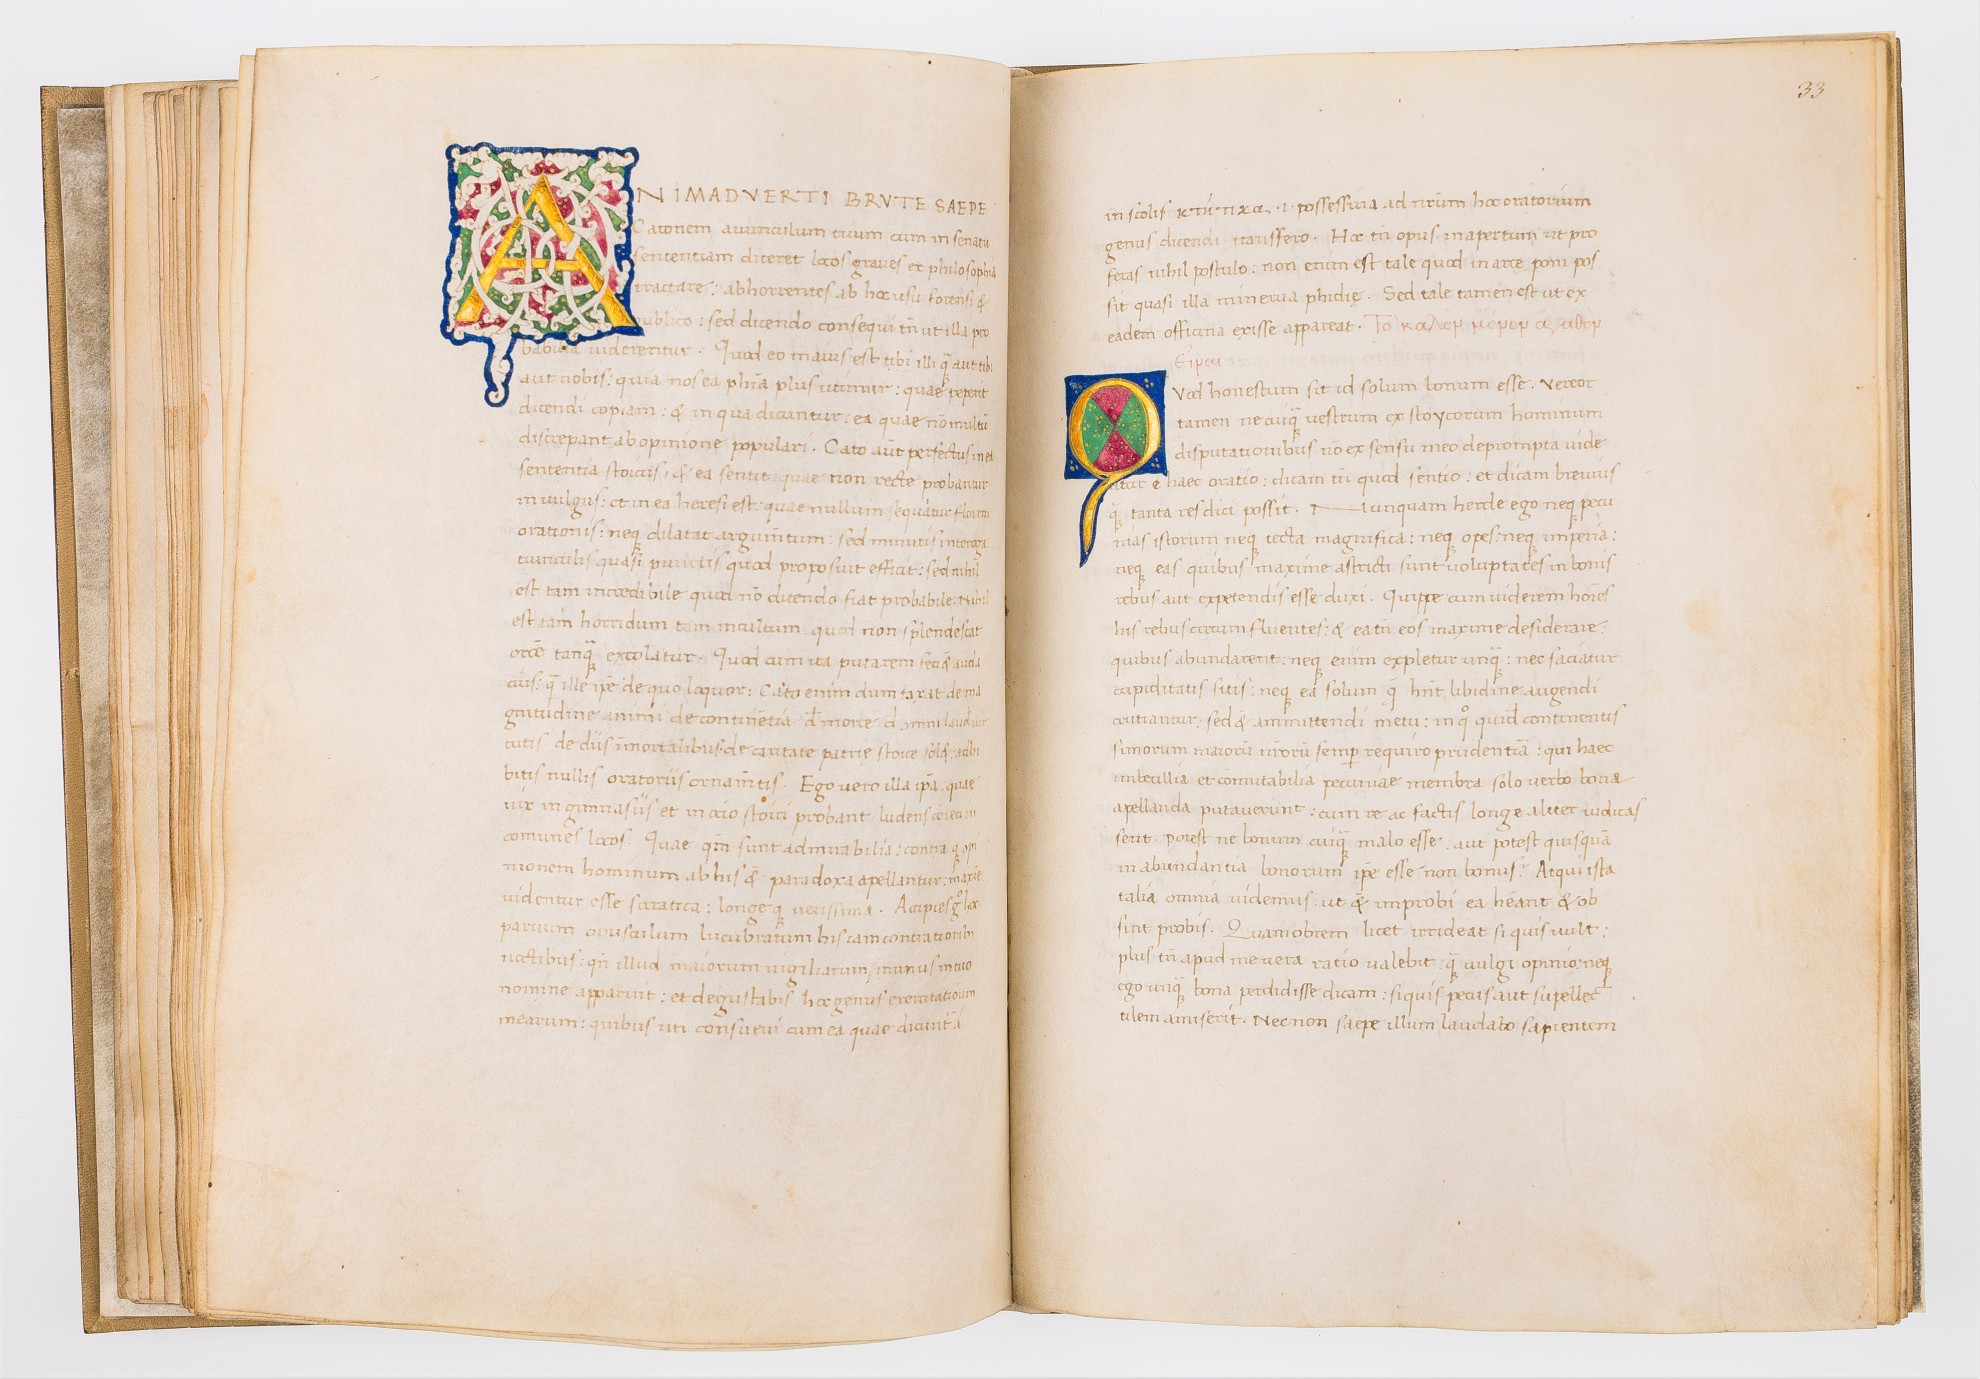 ANIMADVERTI BRVTE SAEPE
Catonem auunculum tuum cum in senatu
sententiam diceret locos graues ex philosophia
tractare: abhorrentes ab hoc usu forensi &
publico: sed dicendo consequi tn̄ ut illa pro
babilia uiderentur. Quod eo maius est tibi illi q̄ aut tibi
aut nobis: quia nos ea phīa plus utimur: quae peperit
dicendi copiam: & in qua dicuntur: ea quae nō multū
discrepant ab opinione populari. Cato aūt perfectus in ea
sententia stoicus, & ea sentit quae non recte probantur
in uulgus: et in ea heresi est: quae nullum sequatur florem
orationis: neq dilatat argum̄tum: sed minutis interroga
tiunculis quasi punctis quod proposuit efficit: sed nihil
est tam incredibile quod nō dicendo fiat probabile. Nihil
est tam horridum tam incultum quod non splendescat
orōe tanq̄ excolatur. Quod cum ita putarem feci & auda
cius: q̄ ille ipē de quo loquor: Cato enim dum taxat de ma
gnitudine animi de continētia d̄ morte d̄ omni laude uir
tutis de diis īmortalibus: de caritate patrie stoice solet: adhi
bitis nullis oratoriis ornām̄tis. Ego uero illa ipā: quae
uix in gimnasiis et in ocio stoici probant ludens conieci in
comunes locos. Quae qm̄ sunt admirabilia: contra q opi
nionem hominum ab his & paradoxa apellantur: maxīe
uidentur esse socratica: longe q uerissima. Accipies gͦ hoc
paruum opusculum lucubratum his iam contractiorib
noctibus: qn̄ illud maiorum uigiliarum munus in tuo
nomine apparuit: et degustabis hoc genus exercitationum
mearum: quibus uti consueui cum ea quae dicunt̄
33
in scolis possessiua ad nrūm hoc oratorium
genus dicendi transfero. Hoc tn̄ opus in apertum ut pro
feras nihil postulo: non enim est tale quod in arce poni pos
sit quasi illa minerua phidię. Sed tale tamen est ut ex
eadem officina exisse appareat. Τὸ καλον μόνον ἀγαθον
Εἶναι
QVod honestum sit id solum bonum esse. Vereor
tamen ne cuiq̄ uestrum ex stoycorum hominum
disputationibus nō ex sensu meo deprompta uide
atur haec oratio: dicam tn̄ quod sentio: et dicam breuius
q̄ tanta res dici possit. Nunquam hercle ego neq pecu
nias istorum neq tecta magnifica: neq opes: neq imperia:
neq eas quibus maxime astricti sunt uoluptates in bonis
rebus aut expetendis esse duxi. Quippe cum uiderem hoīes
his rebus circum fluentes: & ea tn̄ eos maxime desiderare:
quibus abundarent: neq enim expletur unq̄: nec saciatur
cupiditatis sitis: neq ea solum q̄ hn̄t libidine augendi
cruciantur: sed & ammittendi metu: in qͦ quid continentis
simorum maiorū nr̄orū semper requiro prudentiā: qui haec
imbecillia et cōmutabilia pecuniae membra solo uerbo bona
apellanda putauerunt: cum re ac factis longe aliter iudicas
sent. Potest ne bonum cuiq̄ malo esse: aut potest quisquā
in abundantia bonorum ipē esse non bonus? Atqui ista
talia omnia uidemus: ut & improbi ea heānt & ob
sint probis. Quamobrem licet irrideat si quis uult:
plus tn̄ apud me uera ratio ualebit: q̄ uulgi opinio: neq
ego unq̄ bona perdidisse dicam: si quis pecus aut supellec
tilem amiserit. Nec non saepe illum laudabo sapientem